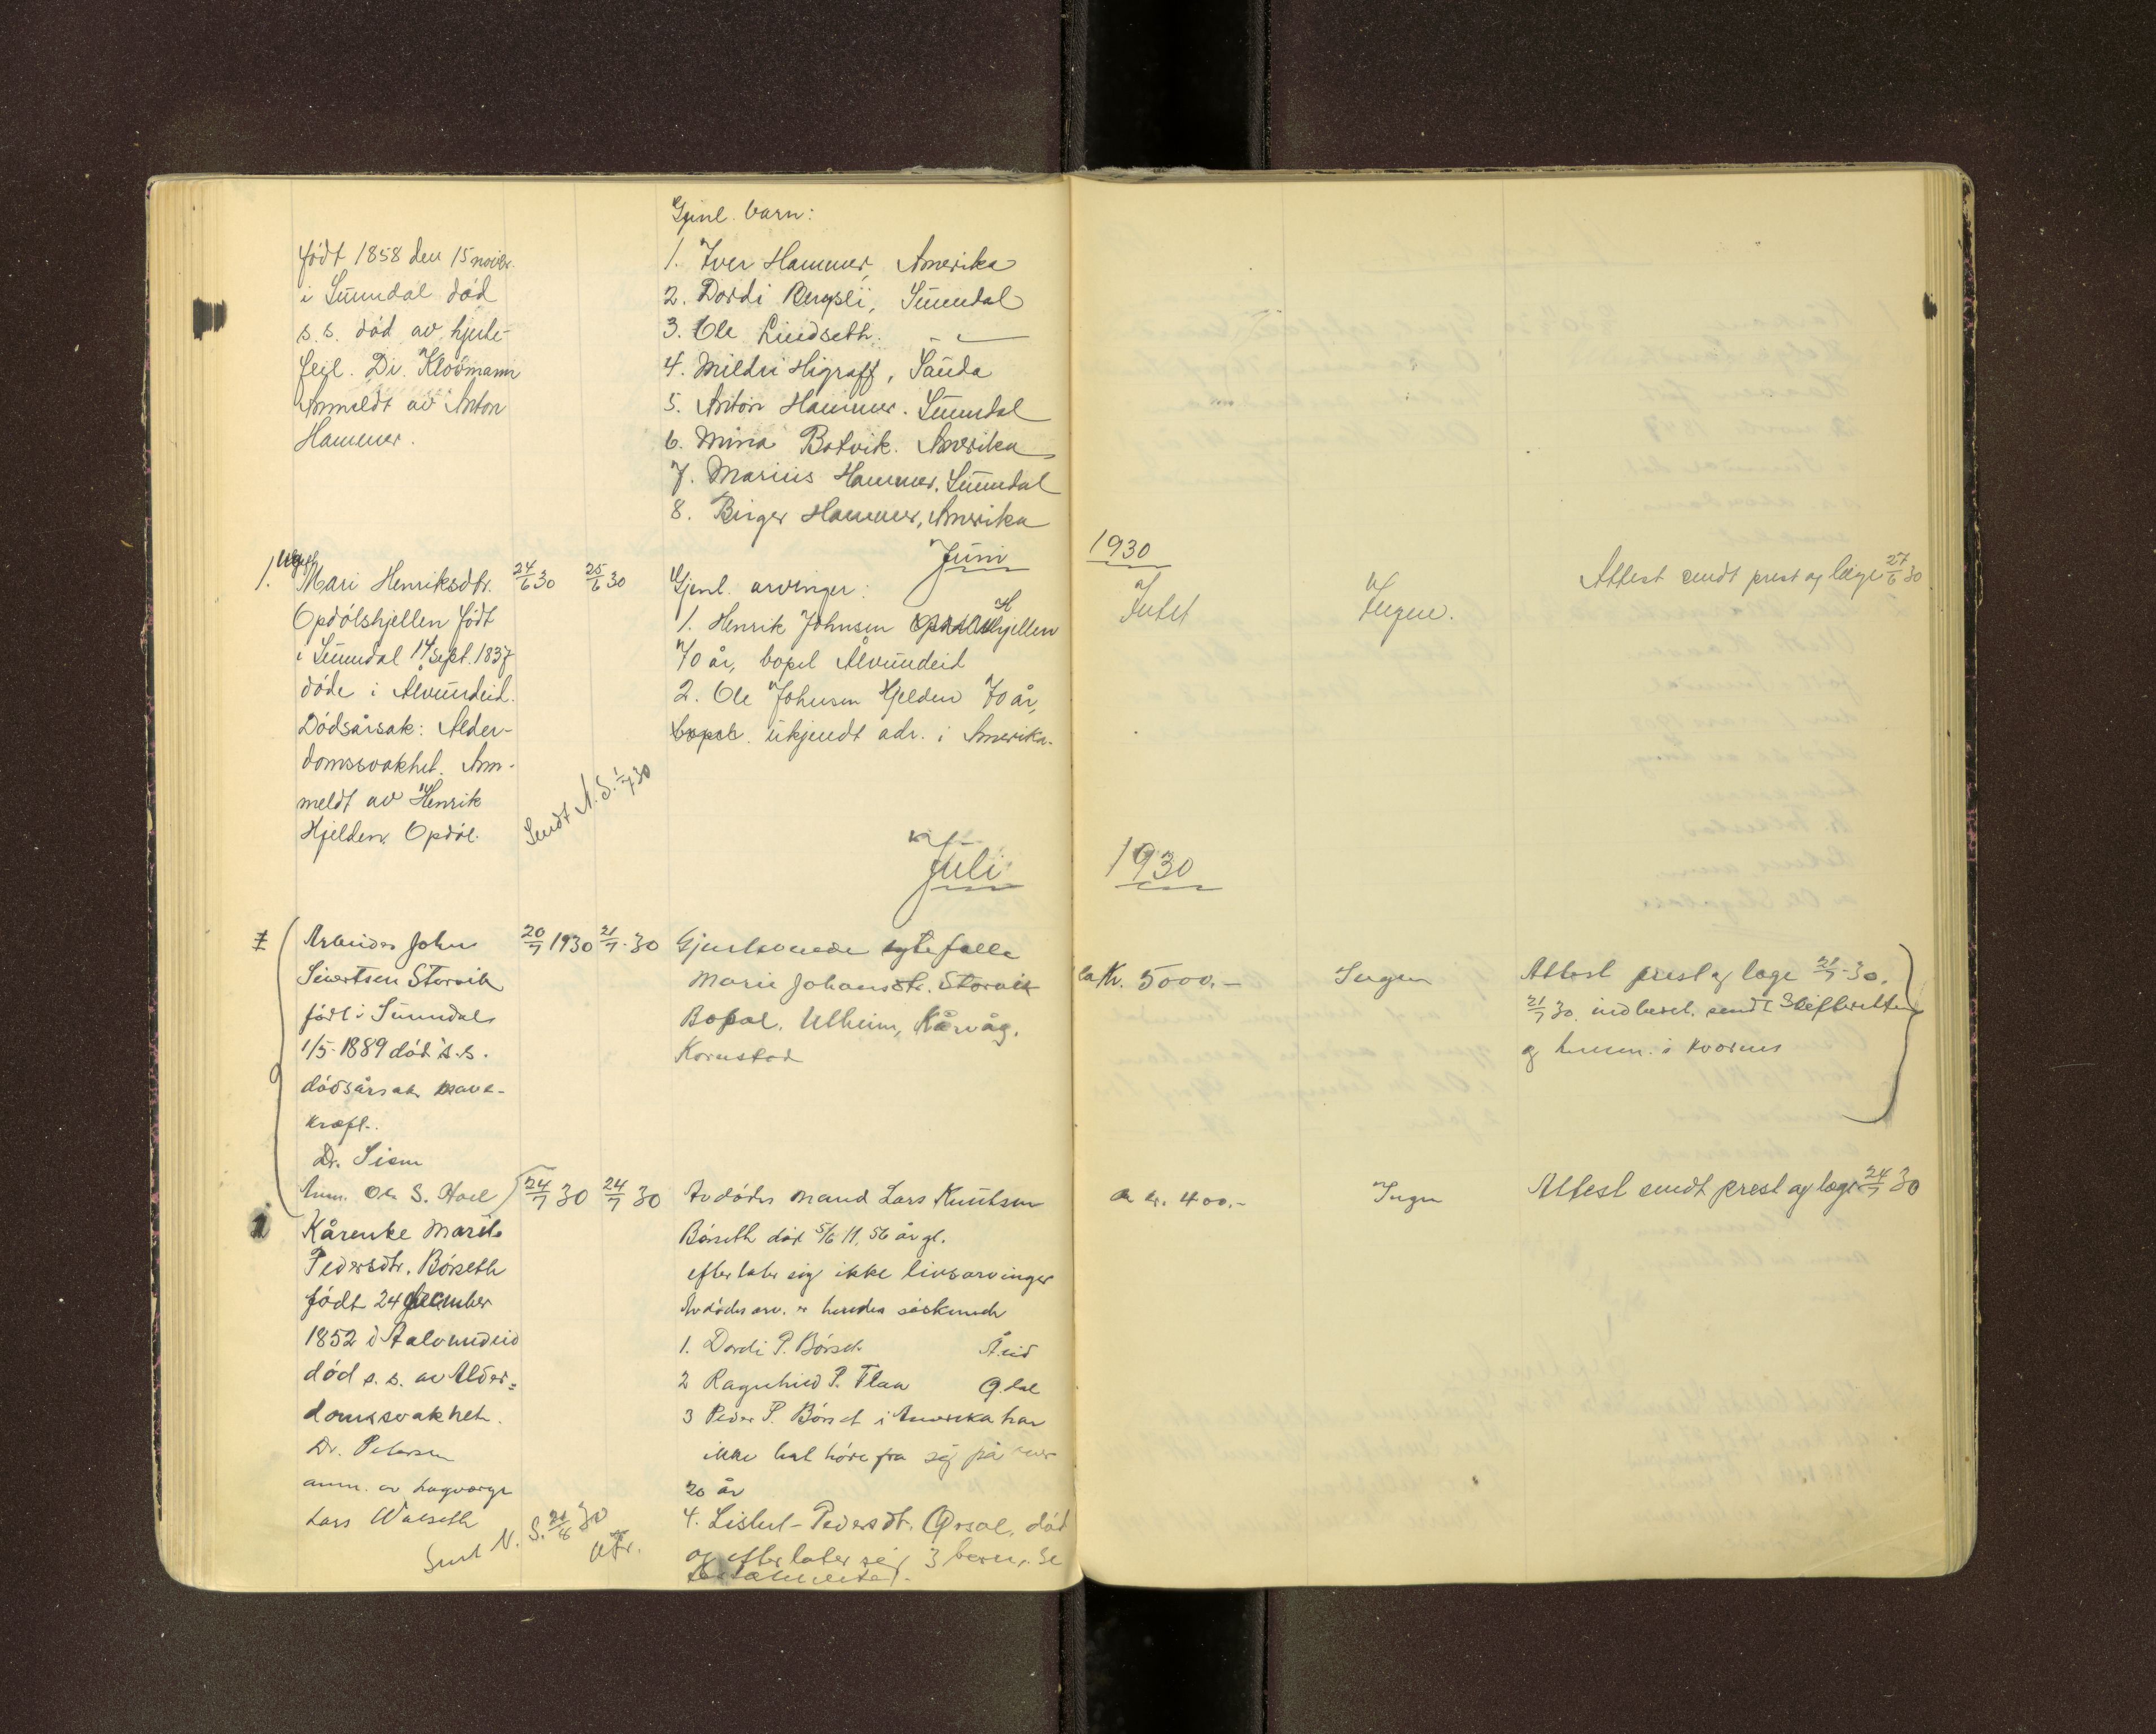 født 1858 den 15 novbr.
i Sunndal død
s. s. død av hjerte-
feil. Dr. Klovmann
Anmeldt av Anton
Hammer.
Gjenl. barn:
1. Iver Hammer, Amerika
2. Dordi Bergsli, Sunndal
3. Ole Lindseth. " —
4. Mildri Higraff, Sauda
5. Anton Hammer. Sunndal
6. Mina Botvik. Amerika
7. Marius Hammer, Sunndal
8. Birger Hammer, Amerika
Juni 1930
1. Ugift
Mari Henriksdtr.
Opdølshjellen født
i Sunndal 14 sept. 1837
døde i Ålvundeid.
Dødsårsak: Alder-
domssvakhet. An-
meldt av Henrik
Hjelden, Opdøl.
24/6 30 25/6 30
Sendt N. S. 1/7 30
Gjenl. arvinger:
1. Henrik Johnsen Hjellen
70 år, bopel Ålvundeid
2. Ole Johnsen Hjelden 70 år,
bopel. ukjendt adr. i Amerika.
Intet
Ingen.
Attest sendt prest og læge 27/6 30
Juli 1930
Arbeider John
Sivertsen Storvik
født i Sunndal
1/5-1889 død s. s.
dødsårsak mave-
kræft.
Dr. Siem
Anm. Ole S. Hoel
20/7 1930 21/7-30
Gjenlevende ektefelle
Marie Johansdtr. Storvik
Bopæl. Ulheim, Kårvåg.
Kornstad
ca Kr. 5000.-
Ingen
Attest prest og læge 21/7-30.
21/7 30. indberet. sendt Skifteretten
og lensm. i
1
Kårenke Marit
Pedersdtr. Børseth
født 24 december
1852 i Aalvundeid
død s. s. av Alder=
domssvakhet.
Dr. Petersen
anm. av lagværge
Lars Walseth
24/7 30 24/7 30
Sendt N. S. 20/8 30
Avdødes mand Lars Knutsen
Børseth død 5/6 11, 56 år gl.
efterlater sig ikke livsarvinger
Avdødes arv. er hendes søskende
1. Dordi P. Børset Å.eid
2 Ragnhild P. Flaa Q.dal
3 Peder P. Børset i Amerika har
ikke lat høre fra sig på over
20 år
4. Lisbet Pedersdt. død
og efterlater sig 3 barn. Se
kr. 400.-
Ingen
Attest sendt prest og læge 24/7 30